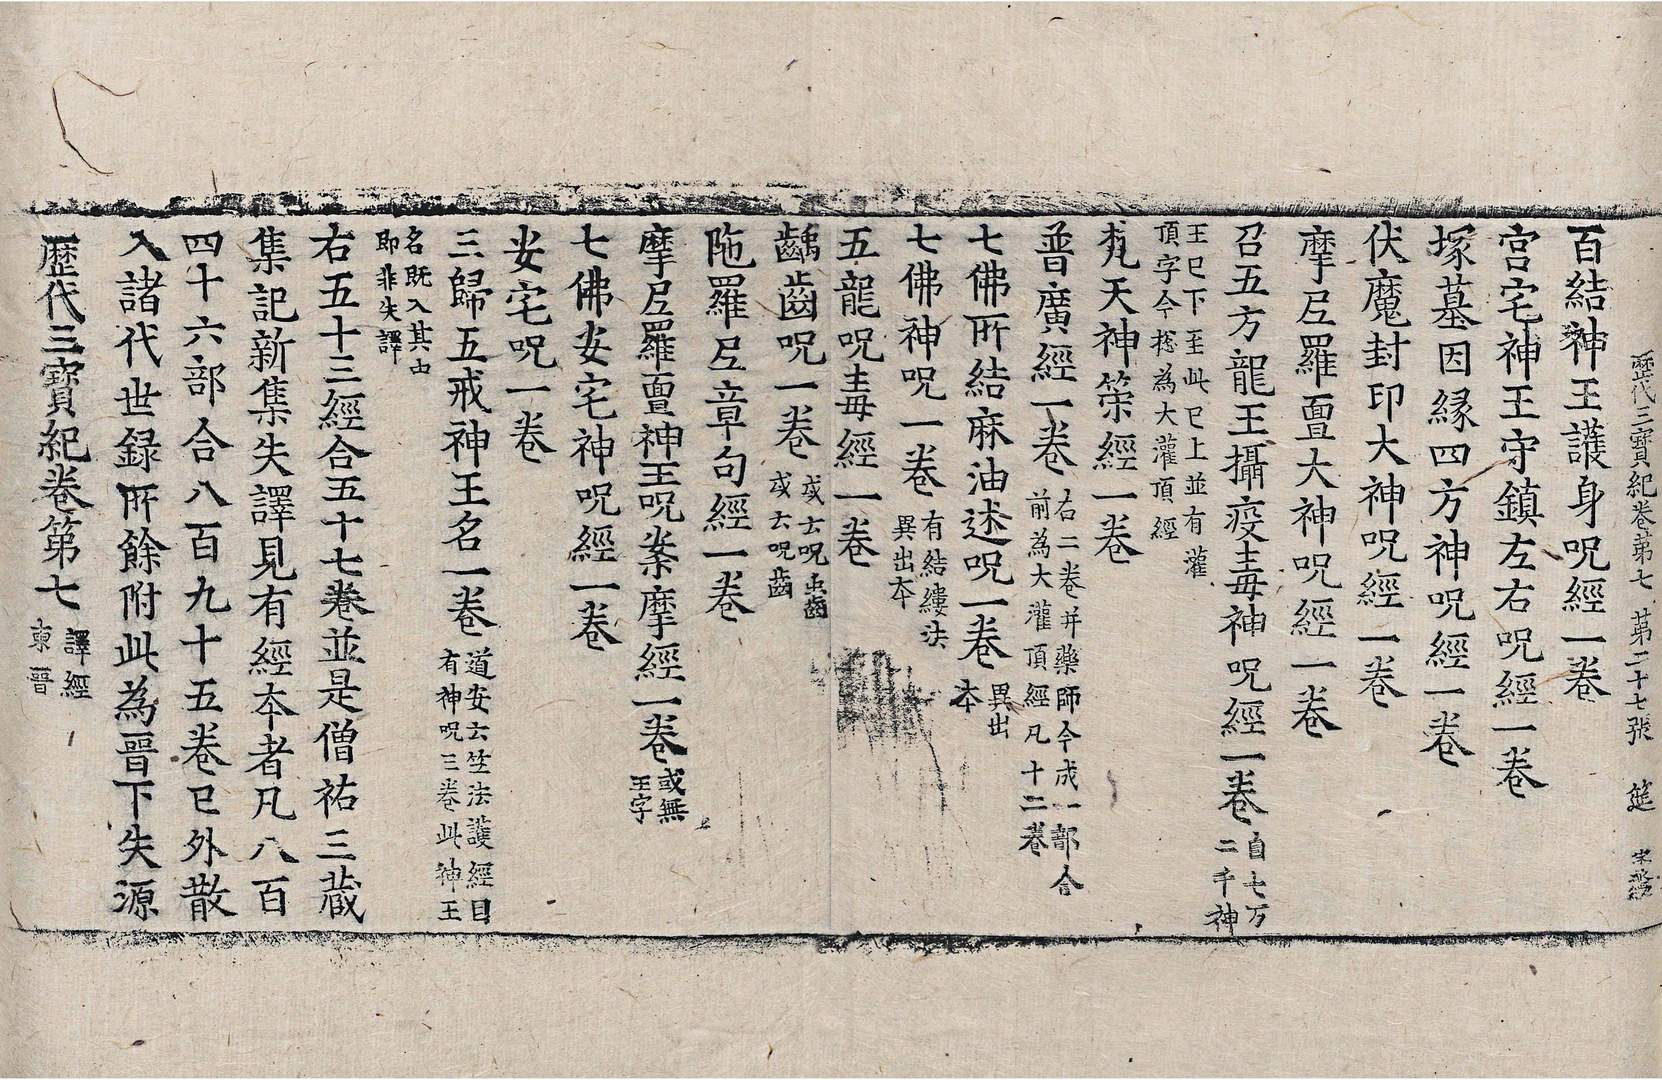 歷代三寶紀卷第七 第二十七張 筵
百結神王護身呪經一卷
宮宅神王守鎮左右呪經一卷
塚墓因緣四方神呪經一卷
伏魔封印大神呪經一卷
摩尼羅亶大神呪經一卷
召五方龍王攝疫毒神呪經一卷 自七万
二千神
王已下至此已上並有灌
頂字今惣為大灌頂經
梵天神策經一卷
普廣經一卷 右二卷并藥師今成一部合
前為大灌頂經凡十二卷
七佛所結麻油述呪一卷 異出
本
七佛神呪一卷 有結縷法
異出本
五龍呪毒經一卷
齲齒呪一卷 或云呪虫齒
或云呪齒
陁羅尼章句經一卷
摩尼羅亶神王呪案摩經一卷 或無
王字
七佛安宅神呪經一卷
安宅呪一卷
三歸五戒神王名一卷 道安云竺法護經目
有神呪三卷此神王
名既入其由
即非失譯
右五十三經合五十七卷並是僧祐三藏
集記新集失譯見有經本者凡八百
四十六部合八百九十五卷已外散
入諸代世録所餘附此為晉下失源
歷代三寶紀卷第七 譯經
東晉